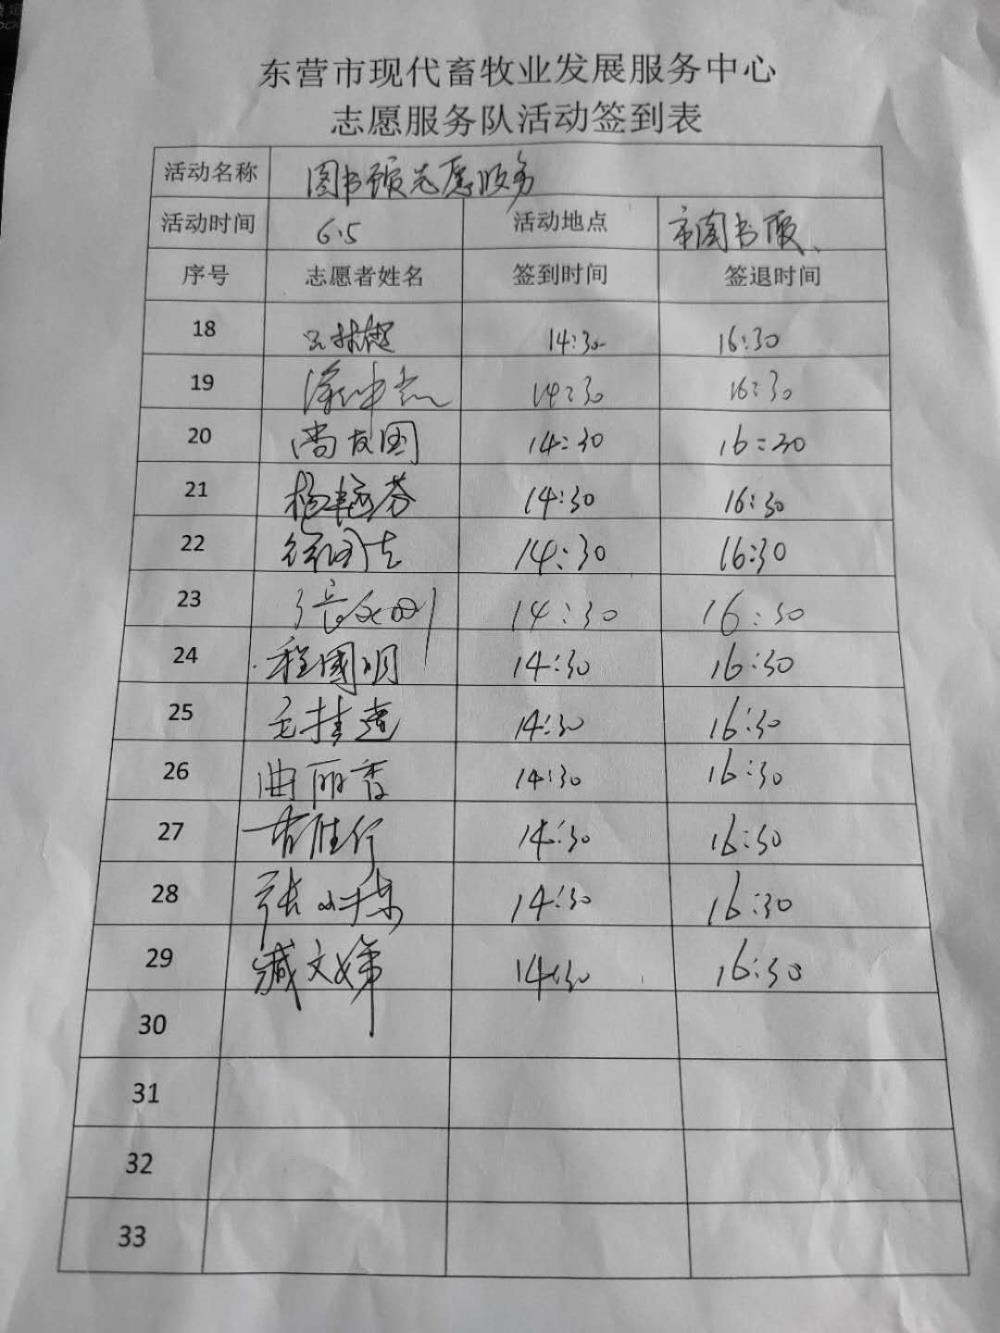 东营市现代畜牧业发展服务中心
志愿服务队活动签到表
活动名称 图书馆志愿服务
活动时间 6.5 活动地点 市图书馆、
序号 志愿者姓名 签到时间 签退时间
18 14:30 16:30
19 14:30 16:30
20 尚友国 14:30 16:30
21 14:30 16:30
22 14:30 16:30
23 14:30 16:30
24 程国明 14:30 16:30
25 14:30 16:30
26 曲丽香 14:30 16:30
27 14:30 16:30
28 张 14:30 16:30
29 臧文娣 14:30 16:30
30
31
32
33